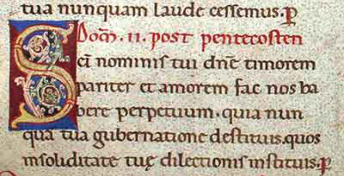 tua nunquam laude cessemus. p
Dom̄. II. post pentecosten
Scī nominis tui dn̄e timorem
pariter et amorem fac nos ha
bere perpetuum. quia nun
quā tua gubernatione destituis. quos
insoliditate tuę dilectionis instituis. p